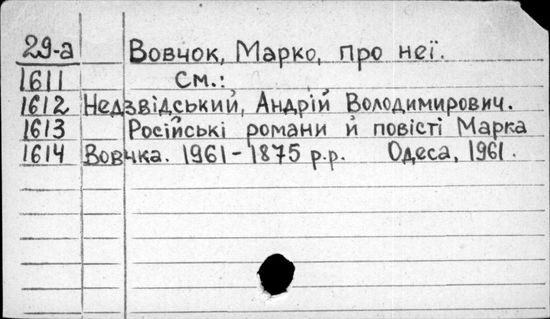 29-а Вовчок, Марко, про неї.
1611 См.:
1612 Недзвідський, Андрій Володимирович.
1613 Російські романи й повісті Марка
1614 Вовчка. 1961-1875 р.р. Одеса, 1961.